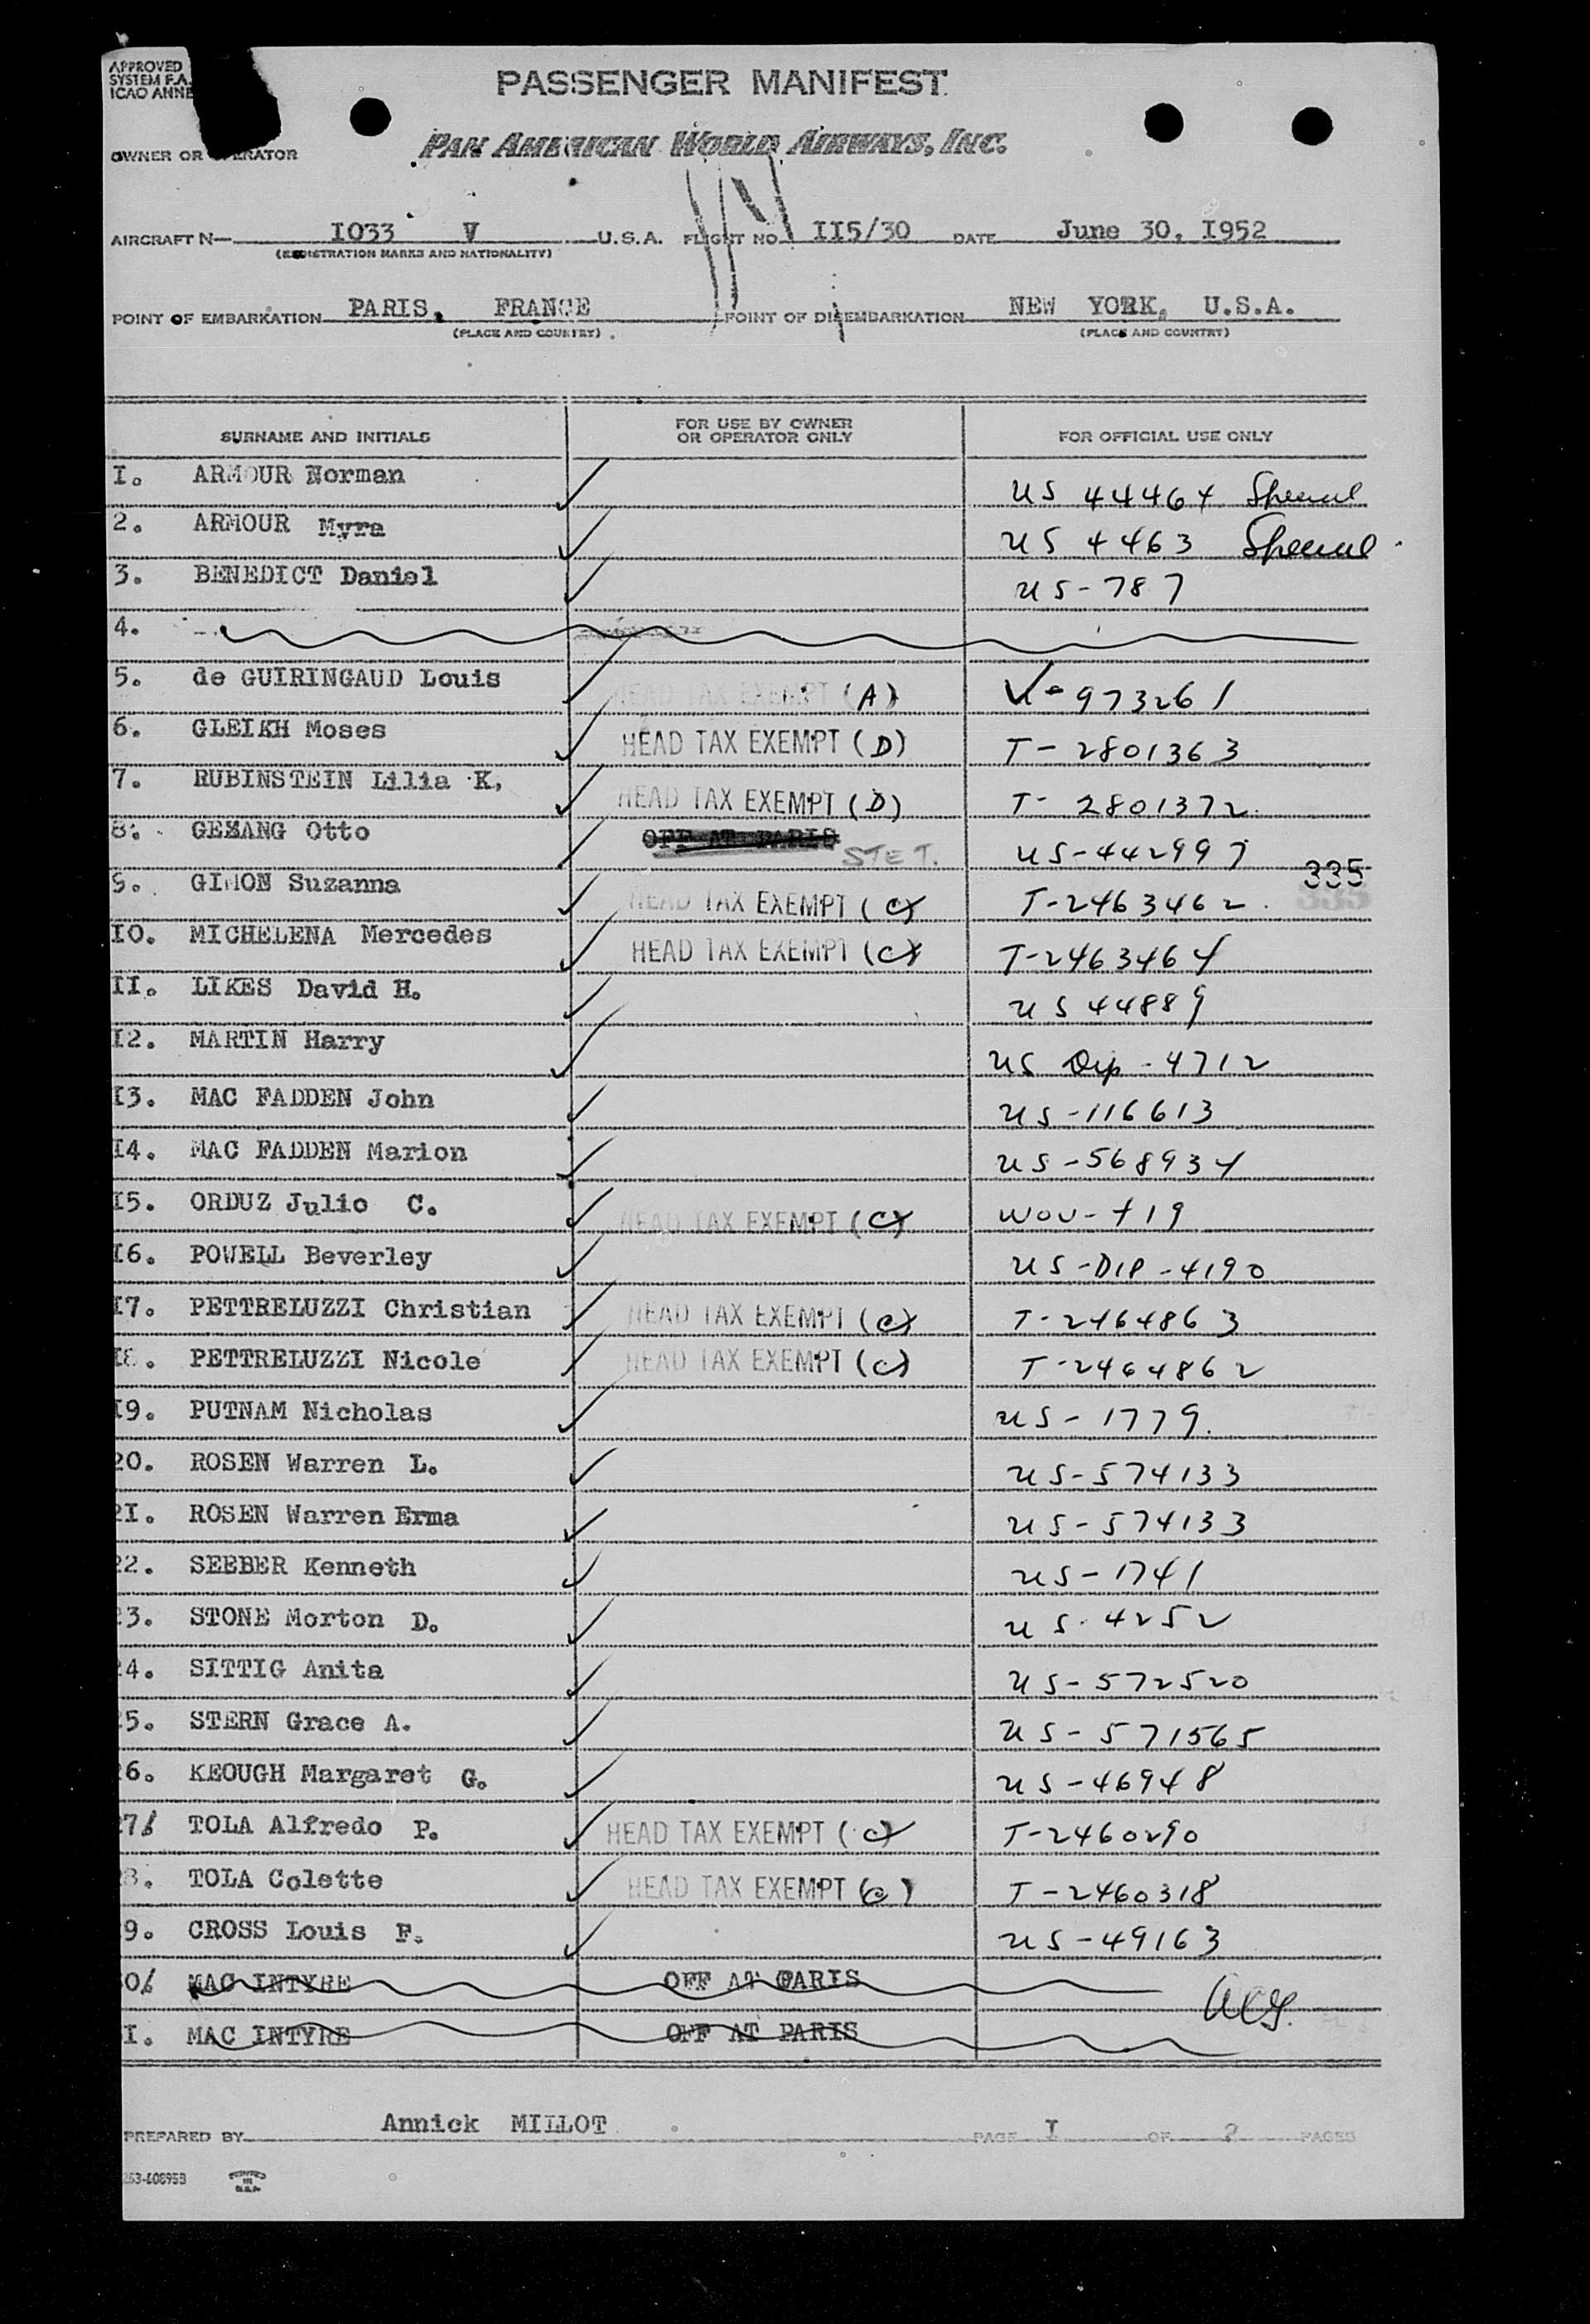 APPROVED
SYSTEM F.A.
ICAO ANNE
PASSENGER MANIFEST
OWNER OR OPERATOR PAN AMERICAN WORLD AIRWAYS, INC.
AIRCRAFT N— I033 V U.S.A. FLIGHT NO. II5/30 DATE June 30, I952
(REGISTRATION MARKS AND NATIONALITY)
POINT OF EMBARKATION PARIS, FRANCE POINT OF DISEMBARKATION NEW YORK, U.S.A.
(PLACE AND COUNTRY) (PLACE AND COUNTRY)
SURNAME AND INITIALS FOR USE BY OWNER OR OPERATOR ONLY FOR OFFICIAL USE ONLY
I. ARMOUR Norman US 44464 Special
2. ARMOUR Myra US 4463 Special
3. BENEDICT Daniel US-787
4.
5. de GUIRINGAUD Louis HEAD TAX EXEMPT (A) V-973261
6. GLEIKH Moses HEAD TAX EXEMPT (D) T-2801363
7. RUBINSTEIN Lilia K, HEAD TAX EXEMPT (D) T-2801372
8. Otto OFF AT PARIS STET. US-442997
335
9. GIMON Suzanna HEAD TAX EXEMPT (C) T-2463462
IO. MICHELENA Mercedes HEAD TAX EXEMPT (C) T-2463464
II. LIKES David H. US 44889
I2. MARTIN Harry US Dip-4712
I3. MAC FADDEN John US-116613
I4. MAC FADDEN Marion US-568934
I5. ORDUZ Julio C. HEAD TAX EXEMPT (C)
I6. POWELL Beverley US-DIP-4190
I7. PETTRELUZZI Christian HEAD TAX EXEMPT (C) T-2464863
I8. PETTRELUZZI Nicole HEAD TAX EXEMPT (C) T-2464862
I9. PUTNAM Nicholas US-1779.
20. ROSEN Warren L. US-574133
2I. ROSEN Warren Erma US-574133
22. SEEBER Kenneth US-1741
23. STONE Morton D. US-4252
24. SITTIG Anita US-572520
25. STERN Grace A. US-571565
26. KEOUGH Margaret G. US-46948
27. TOLA Alfredo P. HEAD TAX EXEMPT (C) T-2460290
28. TOLA Colette HEAD TAX EXEMPT (C) T-2460318
29. CROSS Louis F. US-49163
30. MAC INTYRE OFF AT PARIS
3I. MAC INTYRE OFF AT PARIS
PREPARED BY Annick MILLOT PAGE I OF 2 PAGES